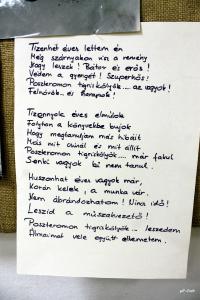 Tizenhét éves lettem én
Még szárnyakon visz a remény
Hogy leszek! Bátor és erős!
Védem a gyengét! Szuperhős!
Poszteremen tigriskölyök... az vagyok!
Felnövök... és harapok!
Tizennyolc éves elmúlok
Folyton a könyvekbe bújok
Hogy megtanuljam más hibáit
Más mit csinál és mit állít
Poszteromon tigriskölyök.... már fakul
Senki vagyok ki nem tanul.
Huszonhat éves vagyok már,
Korán kelek, a munka vár.
Nem ábrándozhatom! Nincs idő!
Leszid a műszakvezető!
Poszteromon tigriskölyök... leszedem
Álmaimat vele együtt eltemetem.